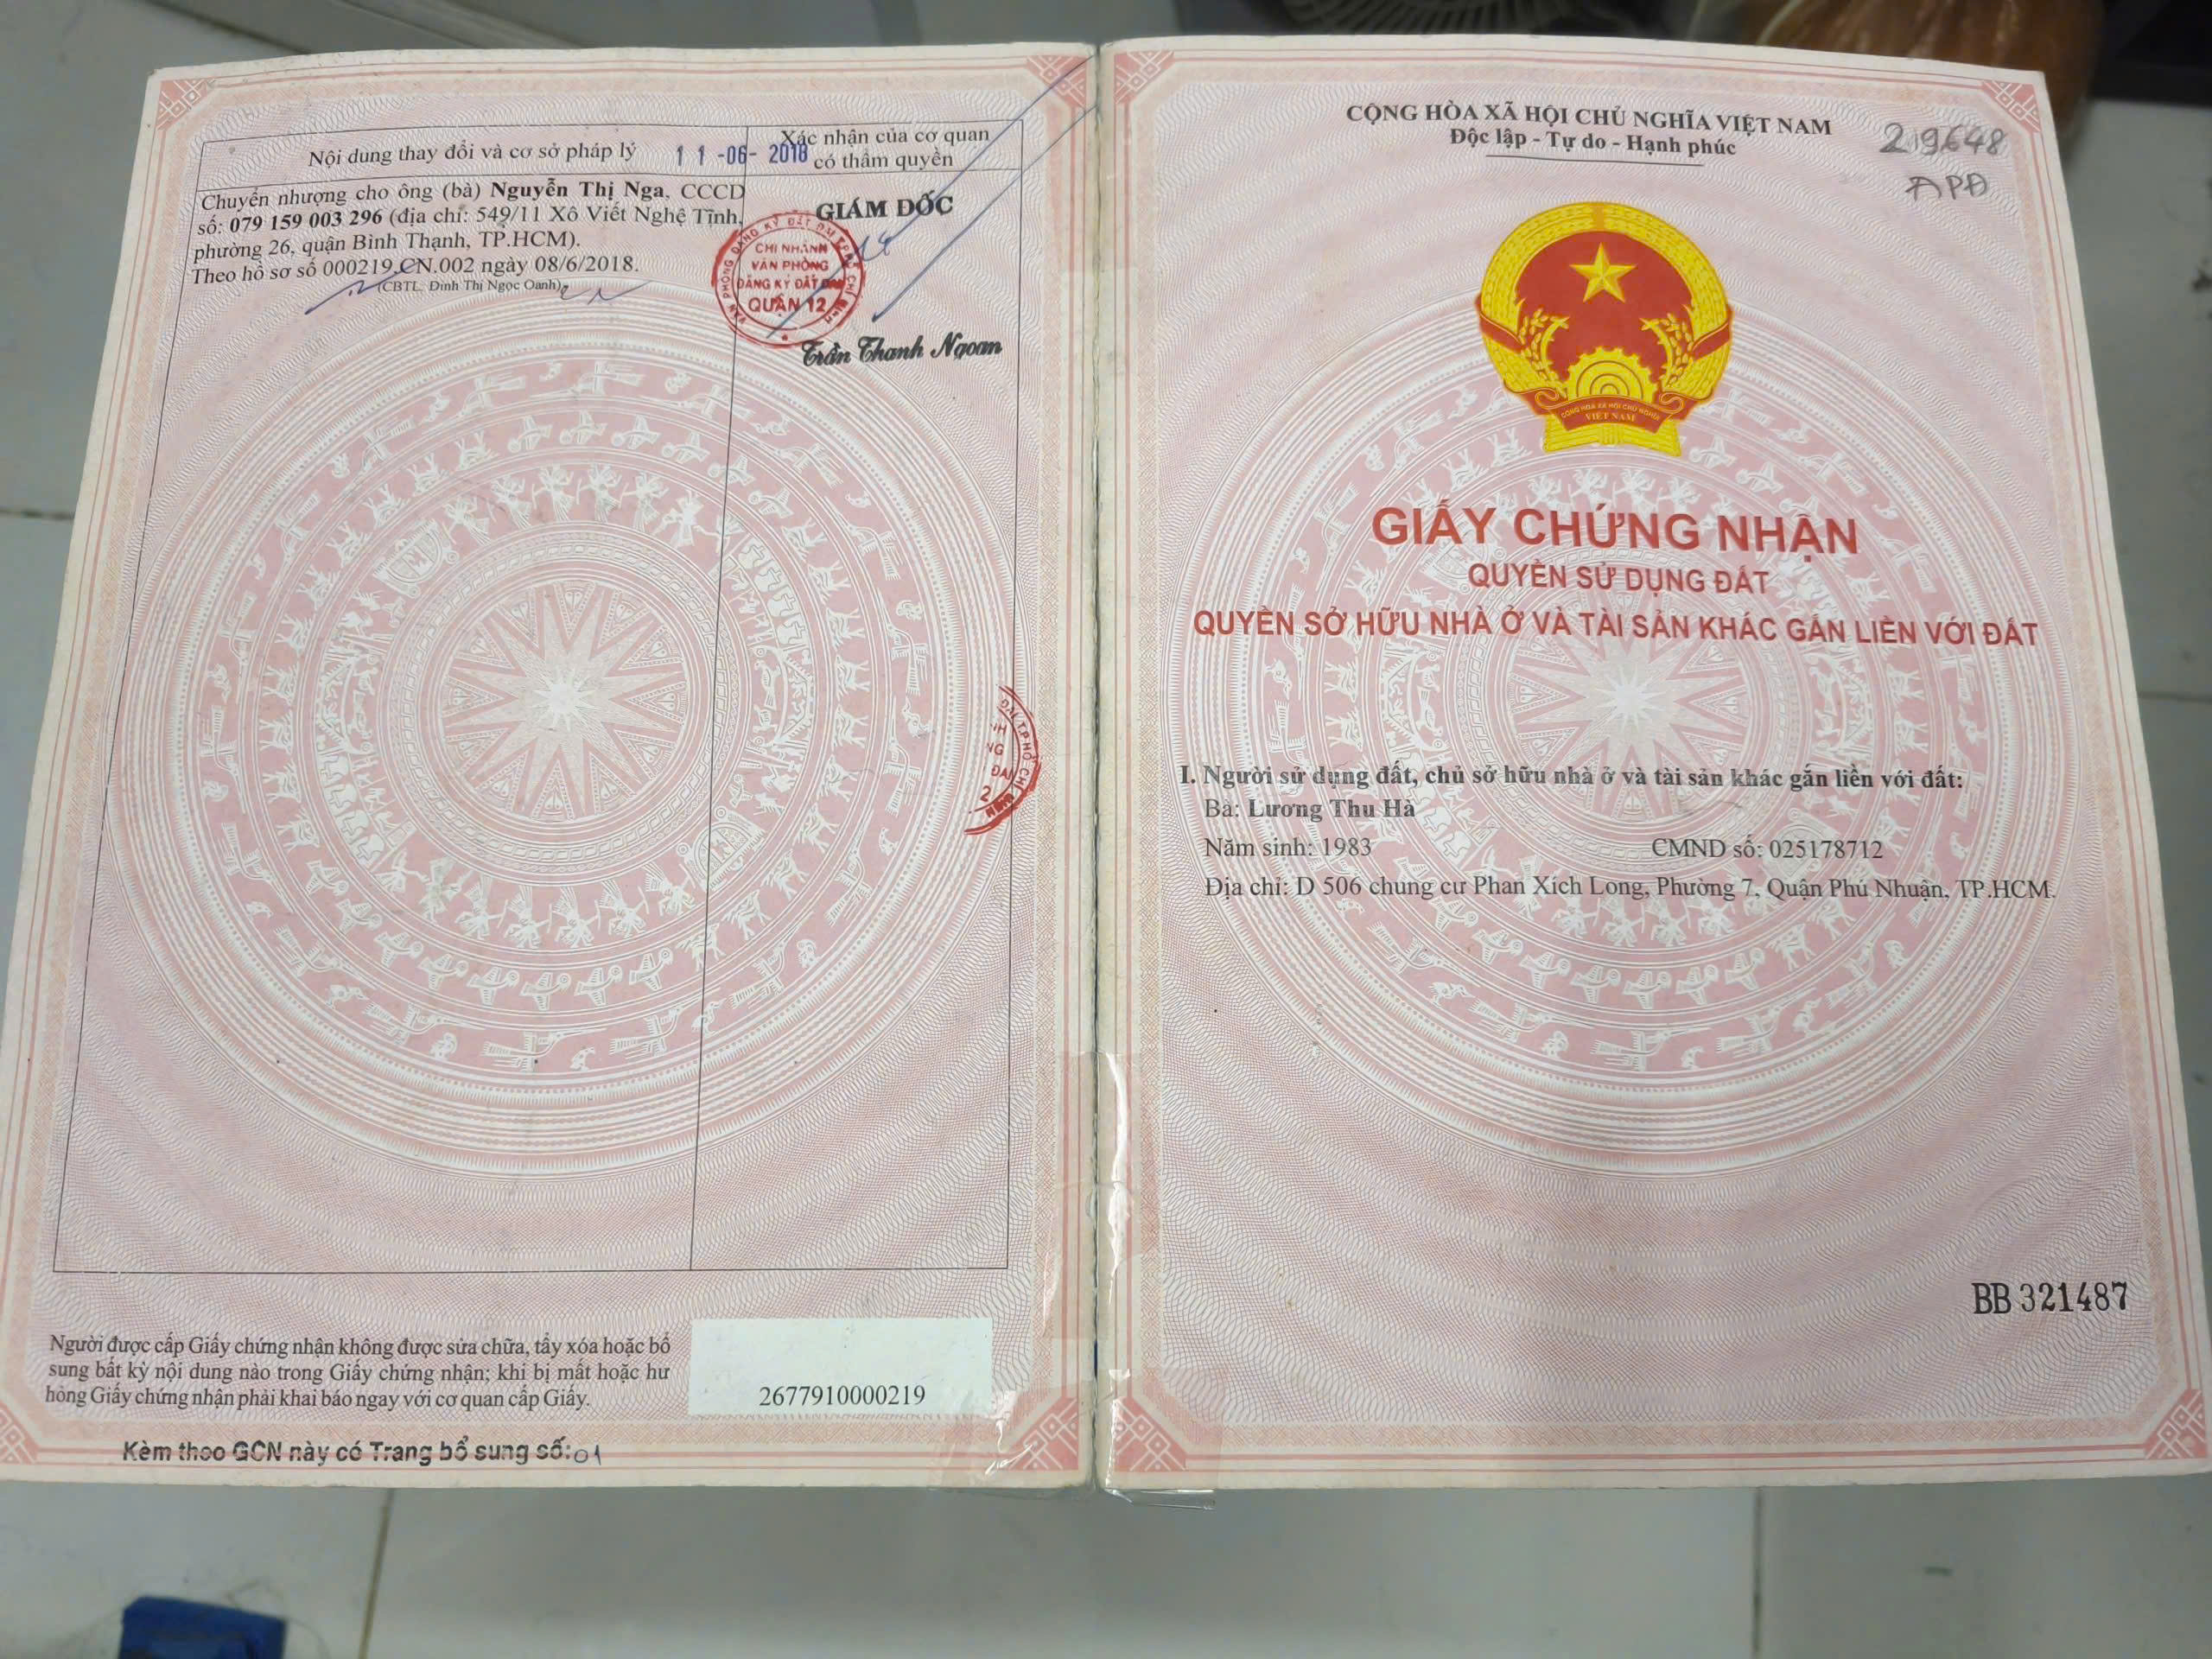 Nội dung thay đổi và cơ sở pháp lý
11-06-2018
Xác nhận của cơ quan
có thẩm quyền
Chuyển nhượng cho ông (bà) Nguyễn Thị Nga, CCCD
số: 079 159 003 296 (địa chỉ: 549/11 Xô Viết Nghệ Tĩnh,
phường 26, quận Bình Thạnh, TP.HCM).
Theo hồ sơ số 000219.CN.002 ngày 08/6/2018.
(CBTL. Đinh Thị Ngọc Oanh)
GIÁM ĐỐC
VĂN PHÒNG ĐĂNG KÝ ĐẤT ĐAI T.P HỒ CHÍ MINH
CHI NHÁNH
VĂN PHÒNG
ĐĂNG KÝ ĐẤT ĐAI
QUẬN 12
Trần Thanh Ngoan
ĐAI T.P HỒ CHÍ MINH
NH
NG
ĐAI
2
Người được cấp Giấy chứng nhận không được sửa chữa, tẩy xóa hoặc bổ
sung bất kỳ nội dung nào trong Giấy chứng nhận; khi bị mất hoặc hư
hỏng Giấy chứng nhận phải khai báo ngay với cơ quan cấp Giấy.
2677910000219
Kèm theo GCN này có Trang bổ sung số: 01
CỘNG HÒA XÃ HỘI CHỦ NGHĨA VIỆT NAM
Độc lập - Tự do - Hạnh phúc
219648
APĐ
CỘNG HÒA XÃ HỘI CHỦ NGHĨA
VIỆT NAM
GIẤY CHỨNG NHẬN
QUYỀN SỬ DỤNG ĐẤT
QUYỀN SỞ HỮU NHÀ Ở VÀ TÀI SẢN KHÁC GẮN LIỀN VỚI ĐẤT
I. Người sử dụng đất, chủ sở hữu nhà ở và tài sản khác gắn liền với đất:
Bà: Lương Thu Hà
Năm sinh: 1983 CMND số: 025178712
Địa chỉ: D 506 chung cư Phan Xích Long, Phường 7, Quận Phú Nhuận, TP.HCM.
BB 321487